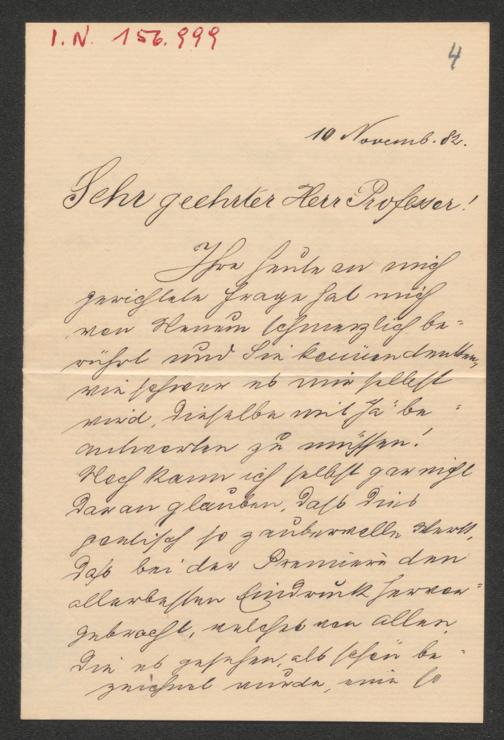 I.N. 156.999
4
10 Novemb. 82.
Sehr geehrter Herr Professor!
Ihre heute an mich
gerichtete Frage hat mich
von Neuem schmerzlich be=
rührt und Sie können denken,
wie schwer es mir selbst
wird, dieselbe mit „Ja" be=
antworten zu müssen!
Noch kann ich selbst gar nicht
daran glauben, daß dies
poetisch so zaubervolle Werk,
daß bei der Premiere den
allerbesten Eindruck hervor=
gebracht, welches von allen,
die es gesehen, als schön be=
zeichnet wurde, nie so